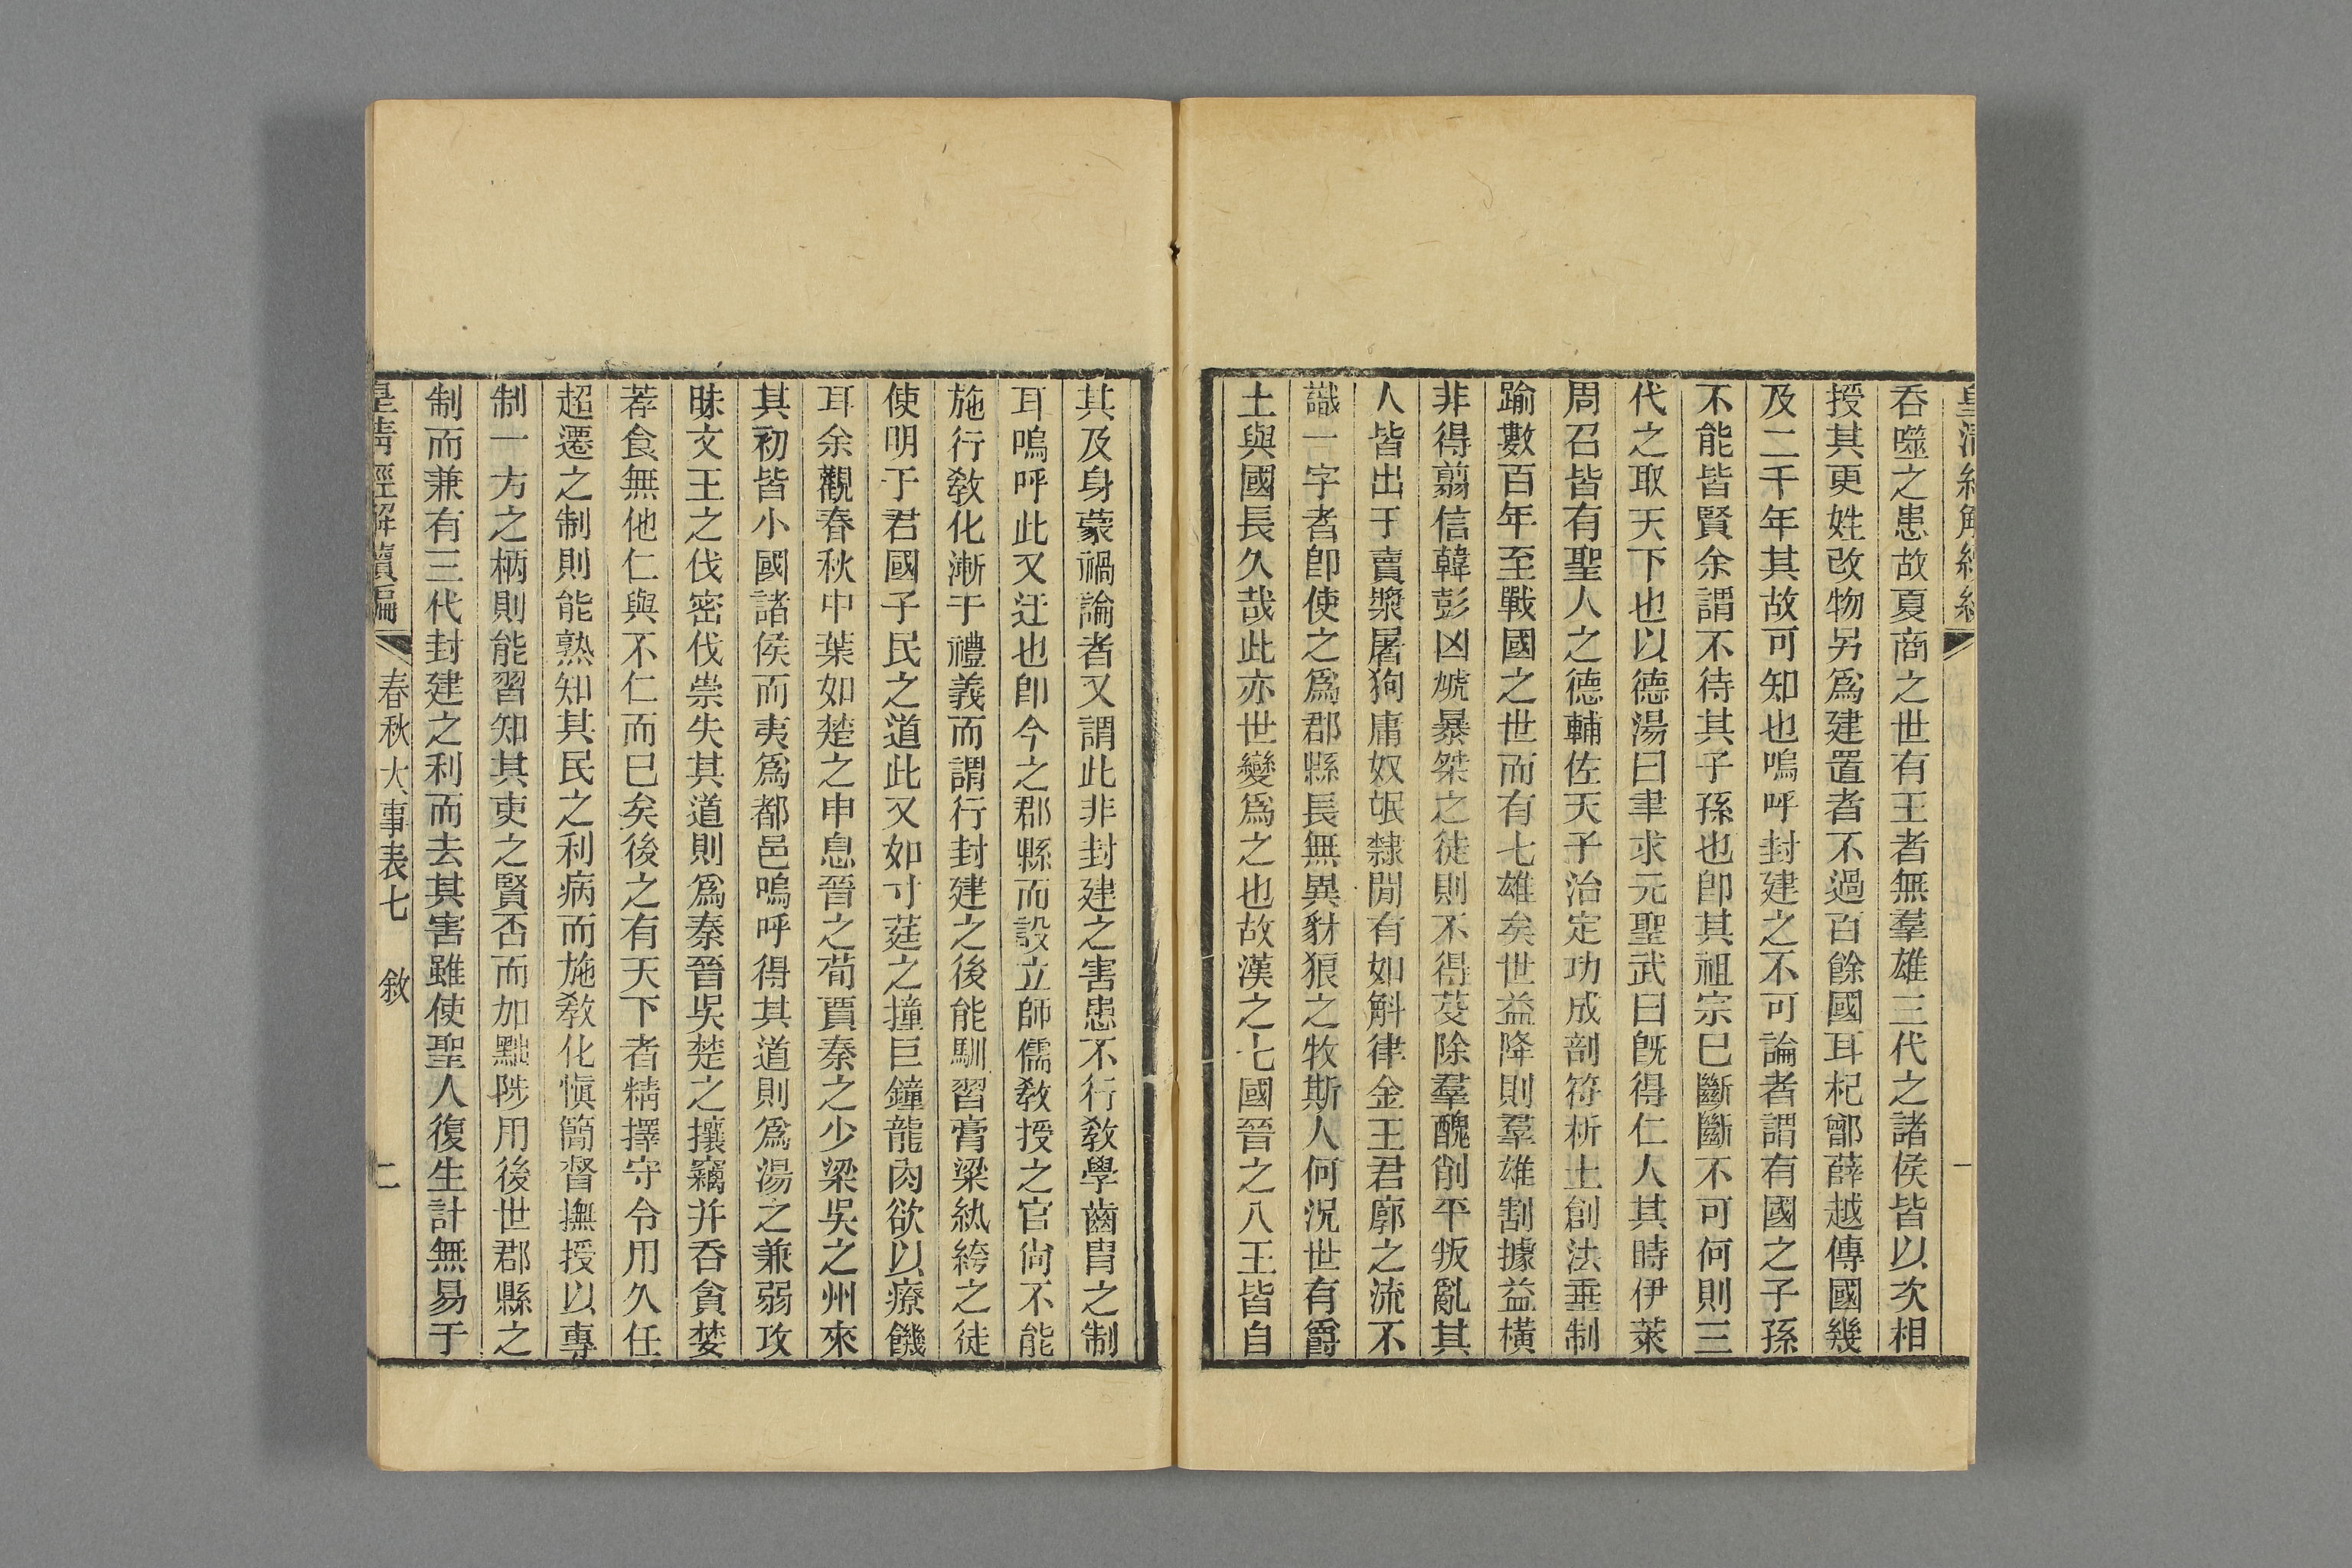 吞噬之患故夏商之世有王者無羣雄三代之諸侯皆以次相
授其更姓改物另爲建置者不過百餘國耳杞鄫薛越傳國幾
及二千年其故可知也嗚呼封建之不可論者謂有國之子孫
不能皆賢余謂不待其子孫也卽其祖宗已斷斷不可何則三
代之取天下也以德湯曰聿求元聖武曰旣得仁人其時伊萊
周召皆有聖人之德輔佐天子治定功成剖符析土創法垂制
踰數百年至戰國之世而有七雄矣世益降則羣雄割據益橫
非得翦信韓彭凶虓暴桀之徒則不得芟除羣醜削平叛亂其
人皆出于賣漿屠狗庸奴氓隸閒有如斛律金王君廓之流不
識一字者卽使之爲郡縣長無異豺狼之牧斯人何況世有爵
土與國長久哉此亦世變爲之也故漢之七國晉之八王皆自
其及身蒙禍論者又謂此非封建之害患不行敎學齒胄之制
耳嗚呼此又迂也卽今之郡縣而設立師儒敎授之官尙不能
施行敎化漸于禮義而謂行封建之後能馴習膏粱紈絝之徒
使明于君國子民之道此又如寸莛之撞巨鐘龍肉欲以療饑
耳余觀春秋中葉如楚之申息晉之荀賈秦之少梁吳之州來
其初皆小國諸侯而夷爲都邑嗚呼得其道則爲湯之兼弱攻
昧文王之伐密伐崇失其道則爲秦晉吳楚之攘竊并吞貪婪
荐食無他仁與不仁而已矣後之有天下者精擇守令用久任
超遷之制則能熟知其民之利病而施敎化愼簡督撫授以專
制一方之柄則能習知其吏之賢否而加黜陟用後世郡縣之
制而兼有三代封建之利而去其害雖使聖人復生計無易于
皇淸經解續編 春秋大事表七 敘 二